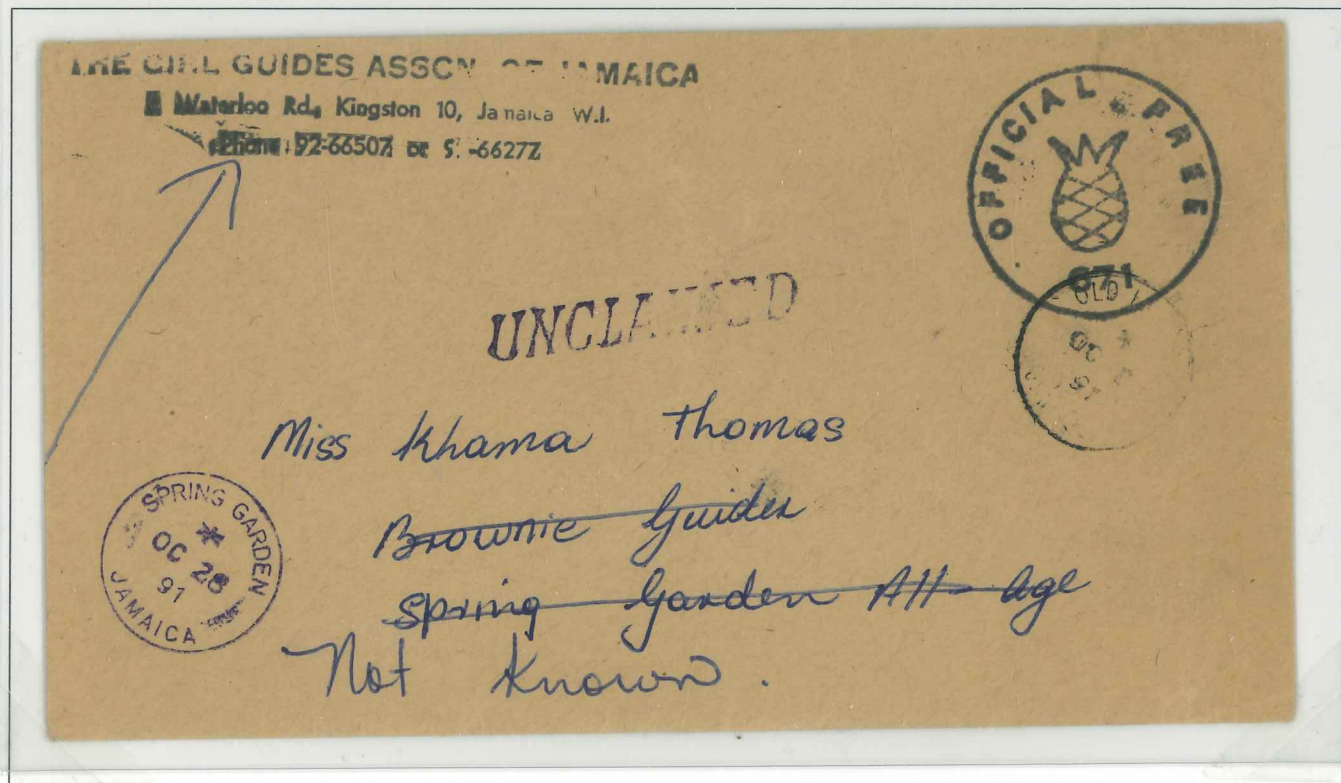 THE GIRL GUIDES ASSCN. OF JAMAICA
2 Waterloo Rd., Kingston 10, Jamaica W.I.
Phone: 92-66507 or 92-66277
OFFICIAL FREE
671
UNCLAIMED
OLD
OC
91
Miss Khama Thomas
Brownie Guider
Spring Garden All-Age
Not Known.
SPRING GARDEN
OC 28
91
JAMAICA